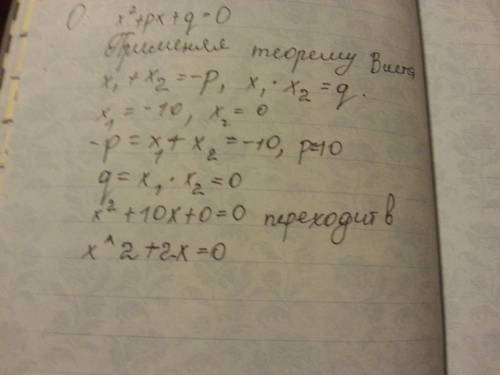 0 x²+px+q=0
Применяя теорему Виета
x₁+x₂=-p, x₁·x₂=q.
x₁=-10, x₂=0
-p=x₁+x₂=-10, p=10
q=x₁·x₂=0
x²+10x+0=0 переходит в
x^2+2x=0